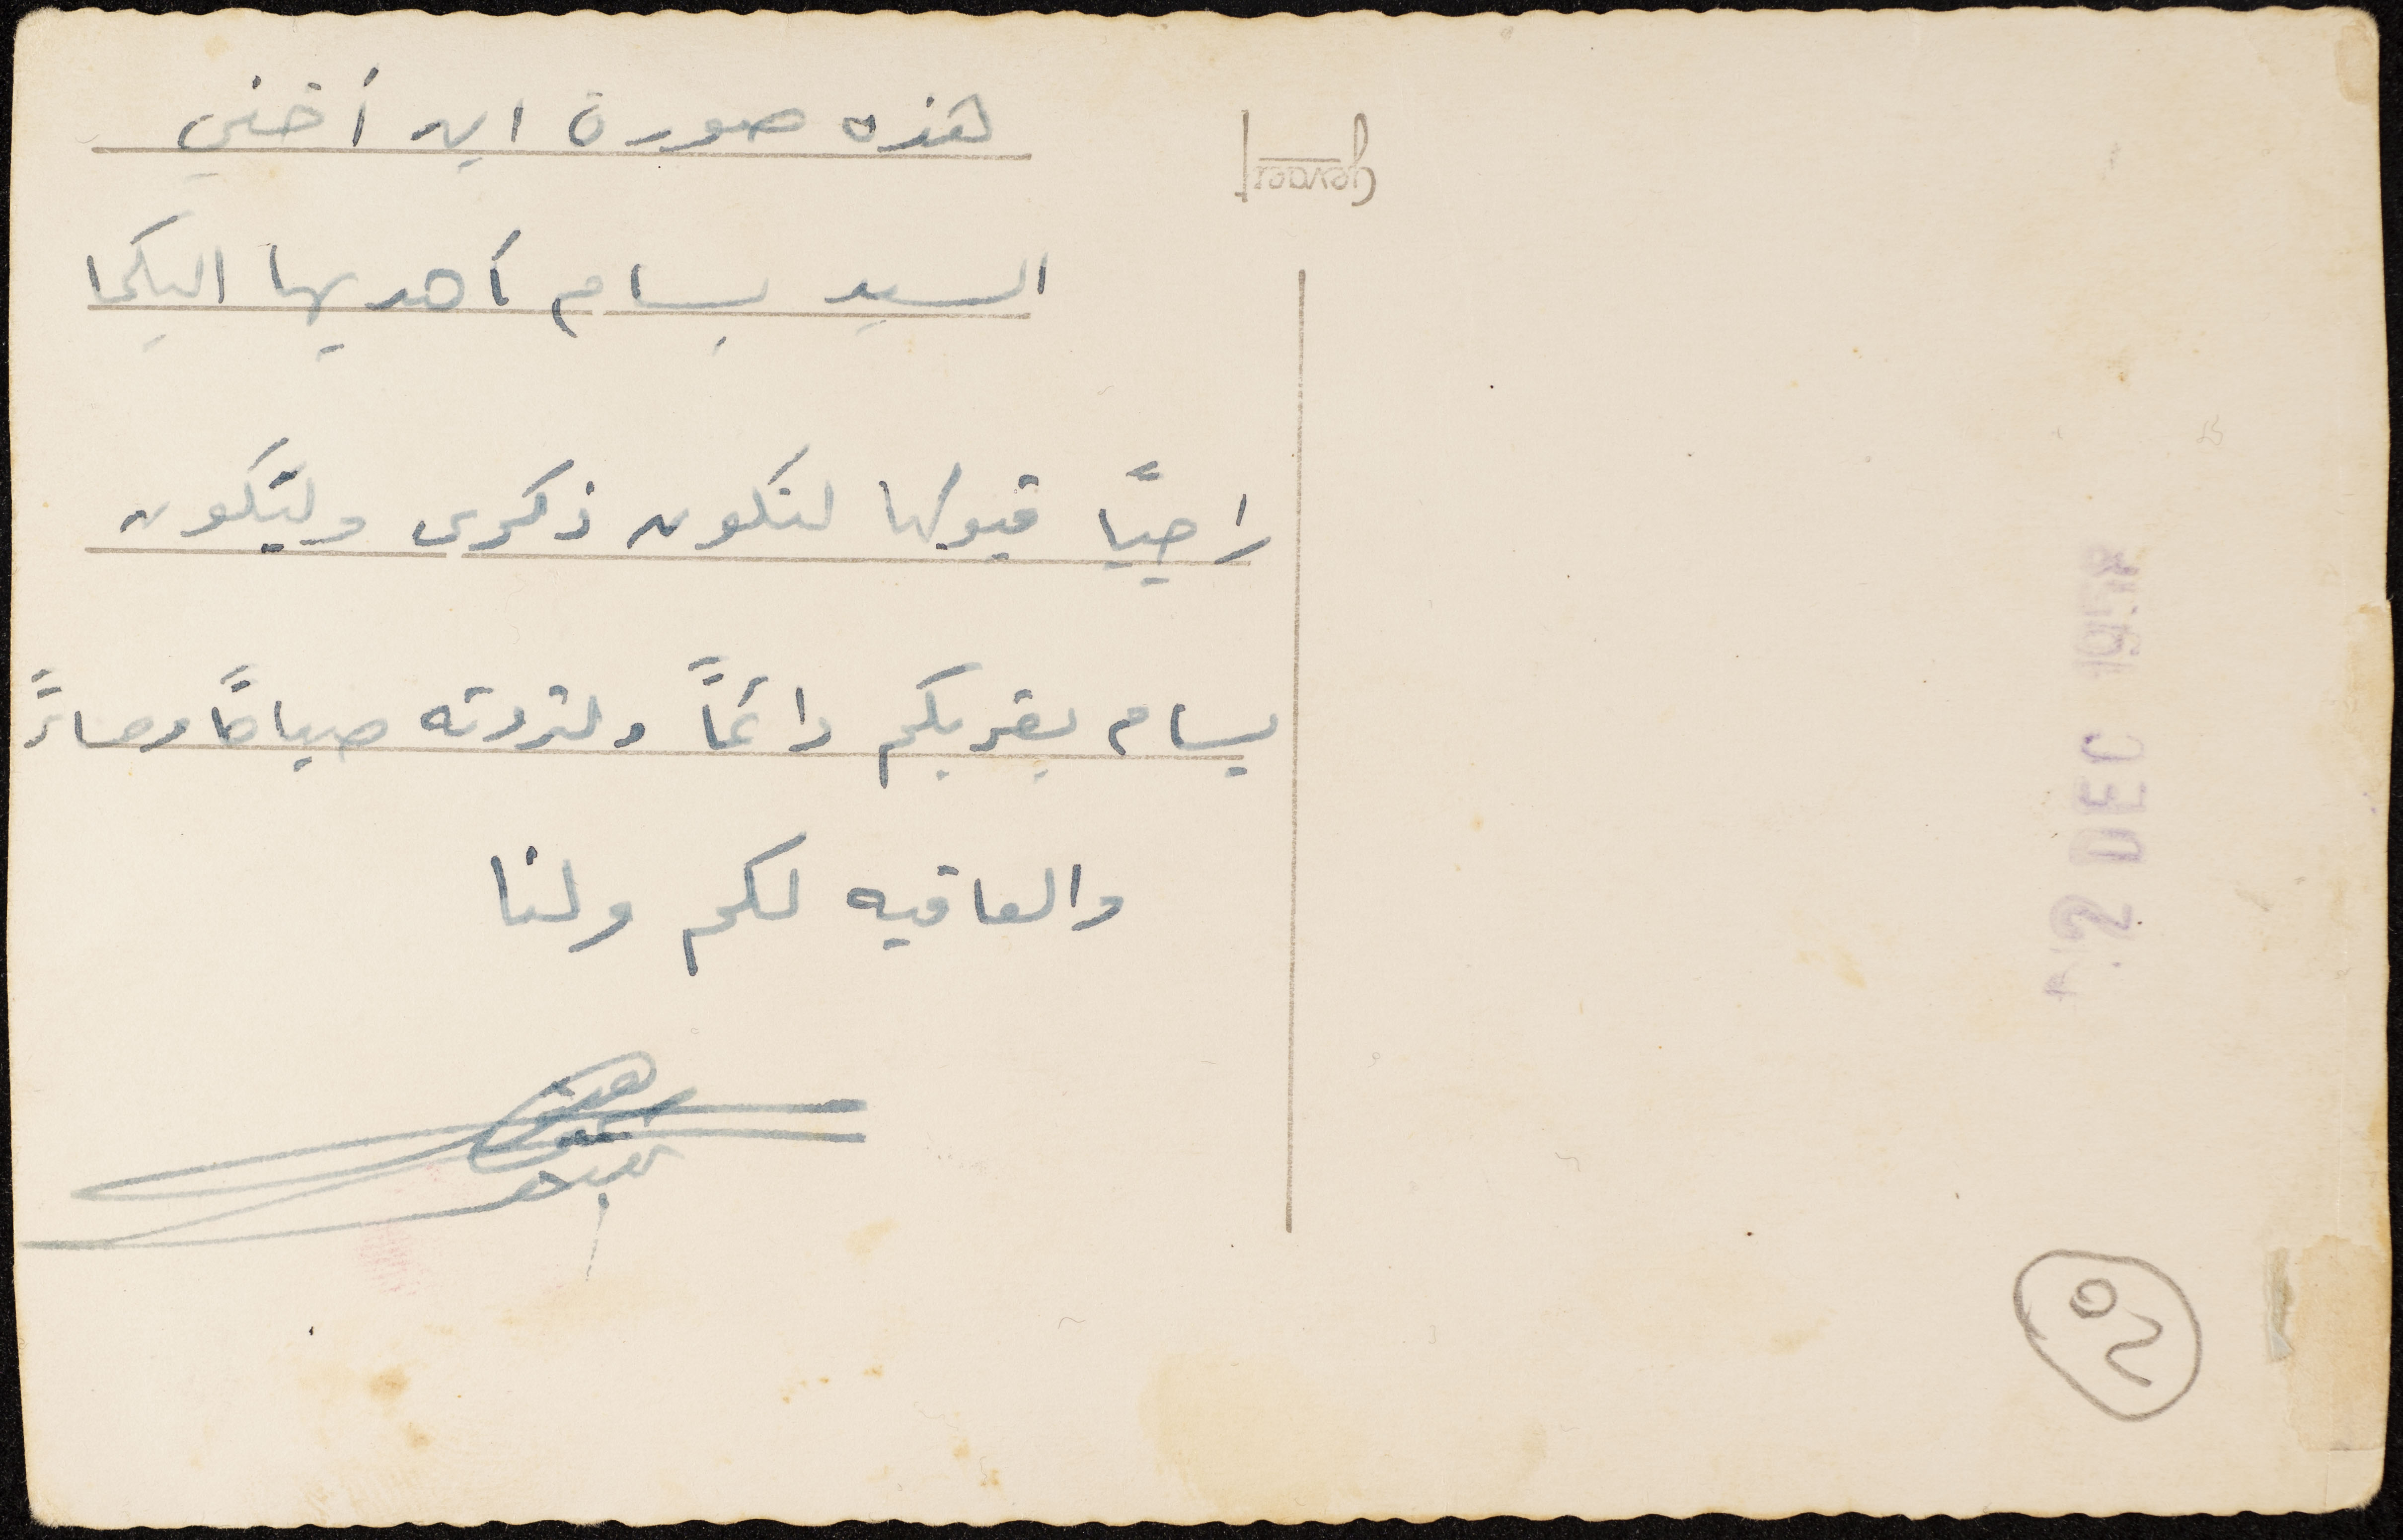 هذه صورة ابن أختي
السيد بسام أهديها اليكما
راجيًا قبولها لتكون ذكرى وليكون
بسام بقربكم دائمًا ولترونه صباحًا ومساءً
والعاقبه لكم ولنا
Gevaert
2 DEC 195